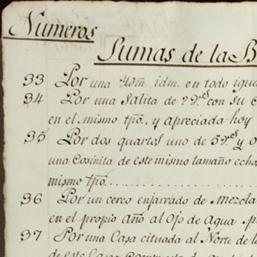 Numeros
Sumas de la B
33 Por una Ydm. idm. en todo igua
34 Por una Salita de 2 Vs con su
en el mismo tpō, y apreciada hoy
35 Por dos quartos uno de 5 y
una Cosinita de este mismo tamaño echa
mismo tpō
36 Por un cerco enjarrado de mezcla
en el propio Año al Ojo de Agua
37 Por una Casa cituada al Norte de l
de este Casa